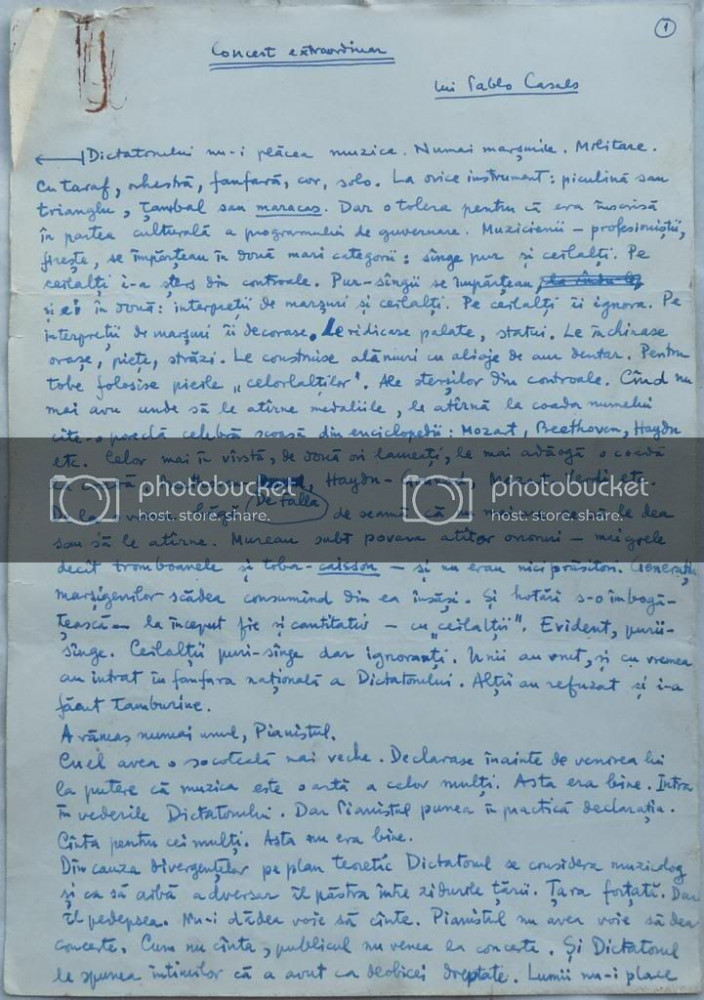 1
Concert extraordinar
lui Pablo Casals
Dictatorului nu-i plăcea muzica. Numai marșurile. Militare.
Cu taraf, orhestră, fanfară, cor, solo. La orice instrument: piculină sau
trianglu, țambal sau maracas. Dar o tolera pentru că era înscrisă
în partea culturală a programului de guvernare. Muzicienii – profesioniștii,
firește, se împărțeau în două mari categorii: sînge pur și ceilalți. Pe
ceilalți i-a șters din controale. Pur-sîngii se împărțeau,
și ei în două: interpreții de marșuri și ceilalți. Pe ceilalți îi ignora. Pe
interpreții de marșuri îi decorase. Le ridicase palate, statui. Le închinase
orașe, piețe, străzi. Le construise alămuri cu aliaje de aur dentar. Pentru
tobe folosise pieile „celorlalților". Ale sterșilor din controale. Cînd nu
mai avu unde să le atîrne medaliile, le atîrnă la coada numelui
cîte-o poreclă celebră scoasă din enciclopedii: Mozart, Beethoven, Haydn
etc. Celor mai în vîrstă, de două ori laureați, le mai adăogă o coadă
Haydn- Mozart- Verdi etc.
De Falla
photobucket photobucket
host. store. share. host. store. share.
de seamă că nu mai are ce să le dea
sau să le atîrne. Mureau subt povara atîtor onoruri – mai grele
decît tromboanele și toba-caisson – și nu erau nici prăsitori. Generația
marșigenilor scădea consumînd din ea însăși. Și hotărî s-o îmbogă-
țească – la început fie și cantitativ – cu „ceilalții". Evident, purii-
sînge. Ceilalții puri-sînge dar ignoranți. Unii au vrut, și cu vremea
au intrat în fanfara națională a Dictatorului. Alții au refuzat și i-a
făcut tamburine.
A rămas numai unul, Pianistul.
Cu el avea o socoteală mai veche. Declarase înainte de venirea lui
la putere că muzica este o artă a celor mulți. Asta era bine. Intra
în vederile Dictatorului. Dar Pianistul punea în practică declarația.
Cînta pentru cei mulți. Asta nu era bine.
Din cauza divergențelor pe plan teoretic Dictatorul se considera muzicolog
și ca să aibă adversar îl păstra între zidurile țării. Țara forțată. Dar
îl pedepsea. Nu-i dădea voie să cînte. Pianistul nu avea voie să dea
concerte. Cum nu cînta, publicul nu venea la concerte. Și Dictatorul
le spunea intimilor că a avut ca deobicei dreptate. Lumii nu-i place